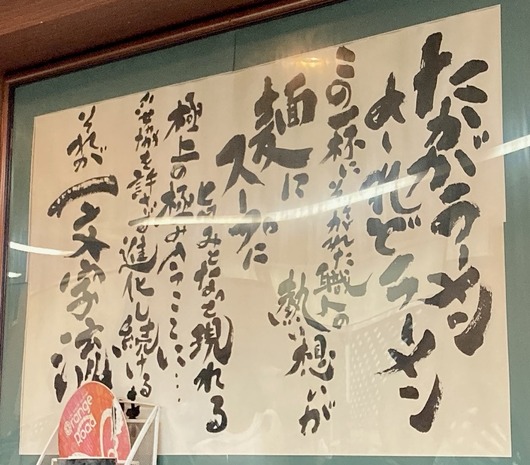 たかがラーメン
されどラーメン
この一杯にそそがれた職人の
熱い想いが
麺に
スープに
旨みとなって現れる
極上の極み今ここに…
妥協を許さず進化し続ける
それが一文字流
orange
Road